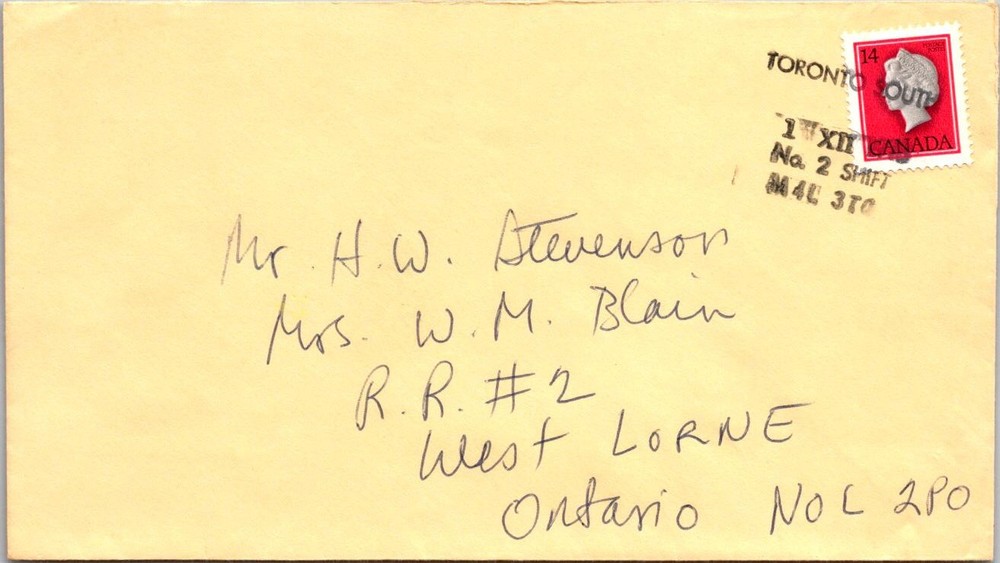 14
CANADA
TORONTO SOUTH
1 XII
No. 2 SHIFT
M4L 3T0
Mr. H.W. Stevenson
Mrs. W.M. Blain
R.R. #2
West LORNE
Ontario N0L 2P0